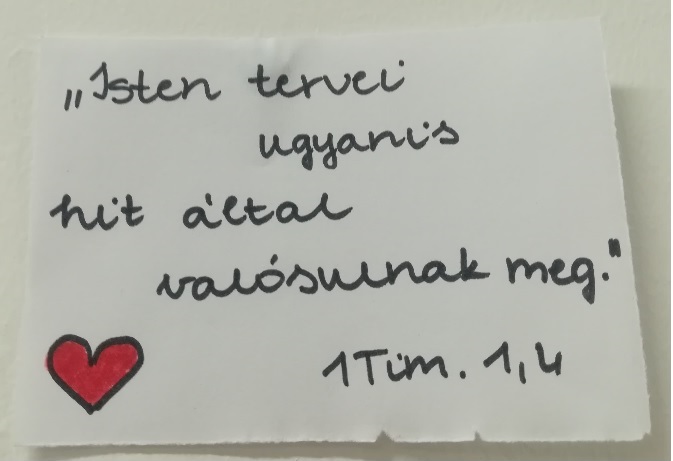 „Isten tervei
ugyanis
hit által
valósulnak meg."
1Tim. 1,4